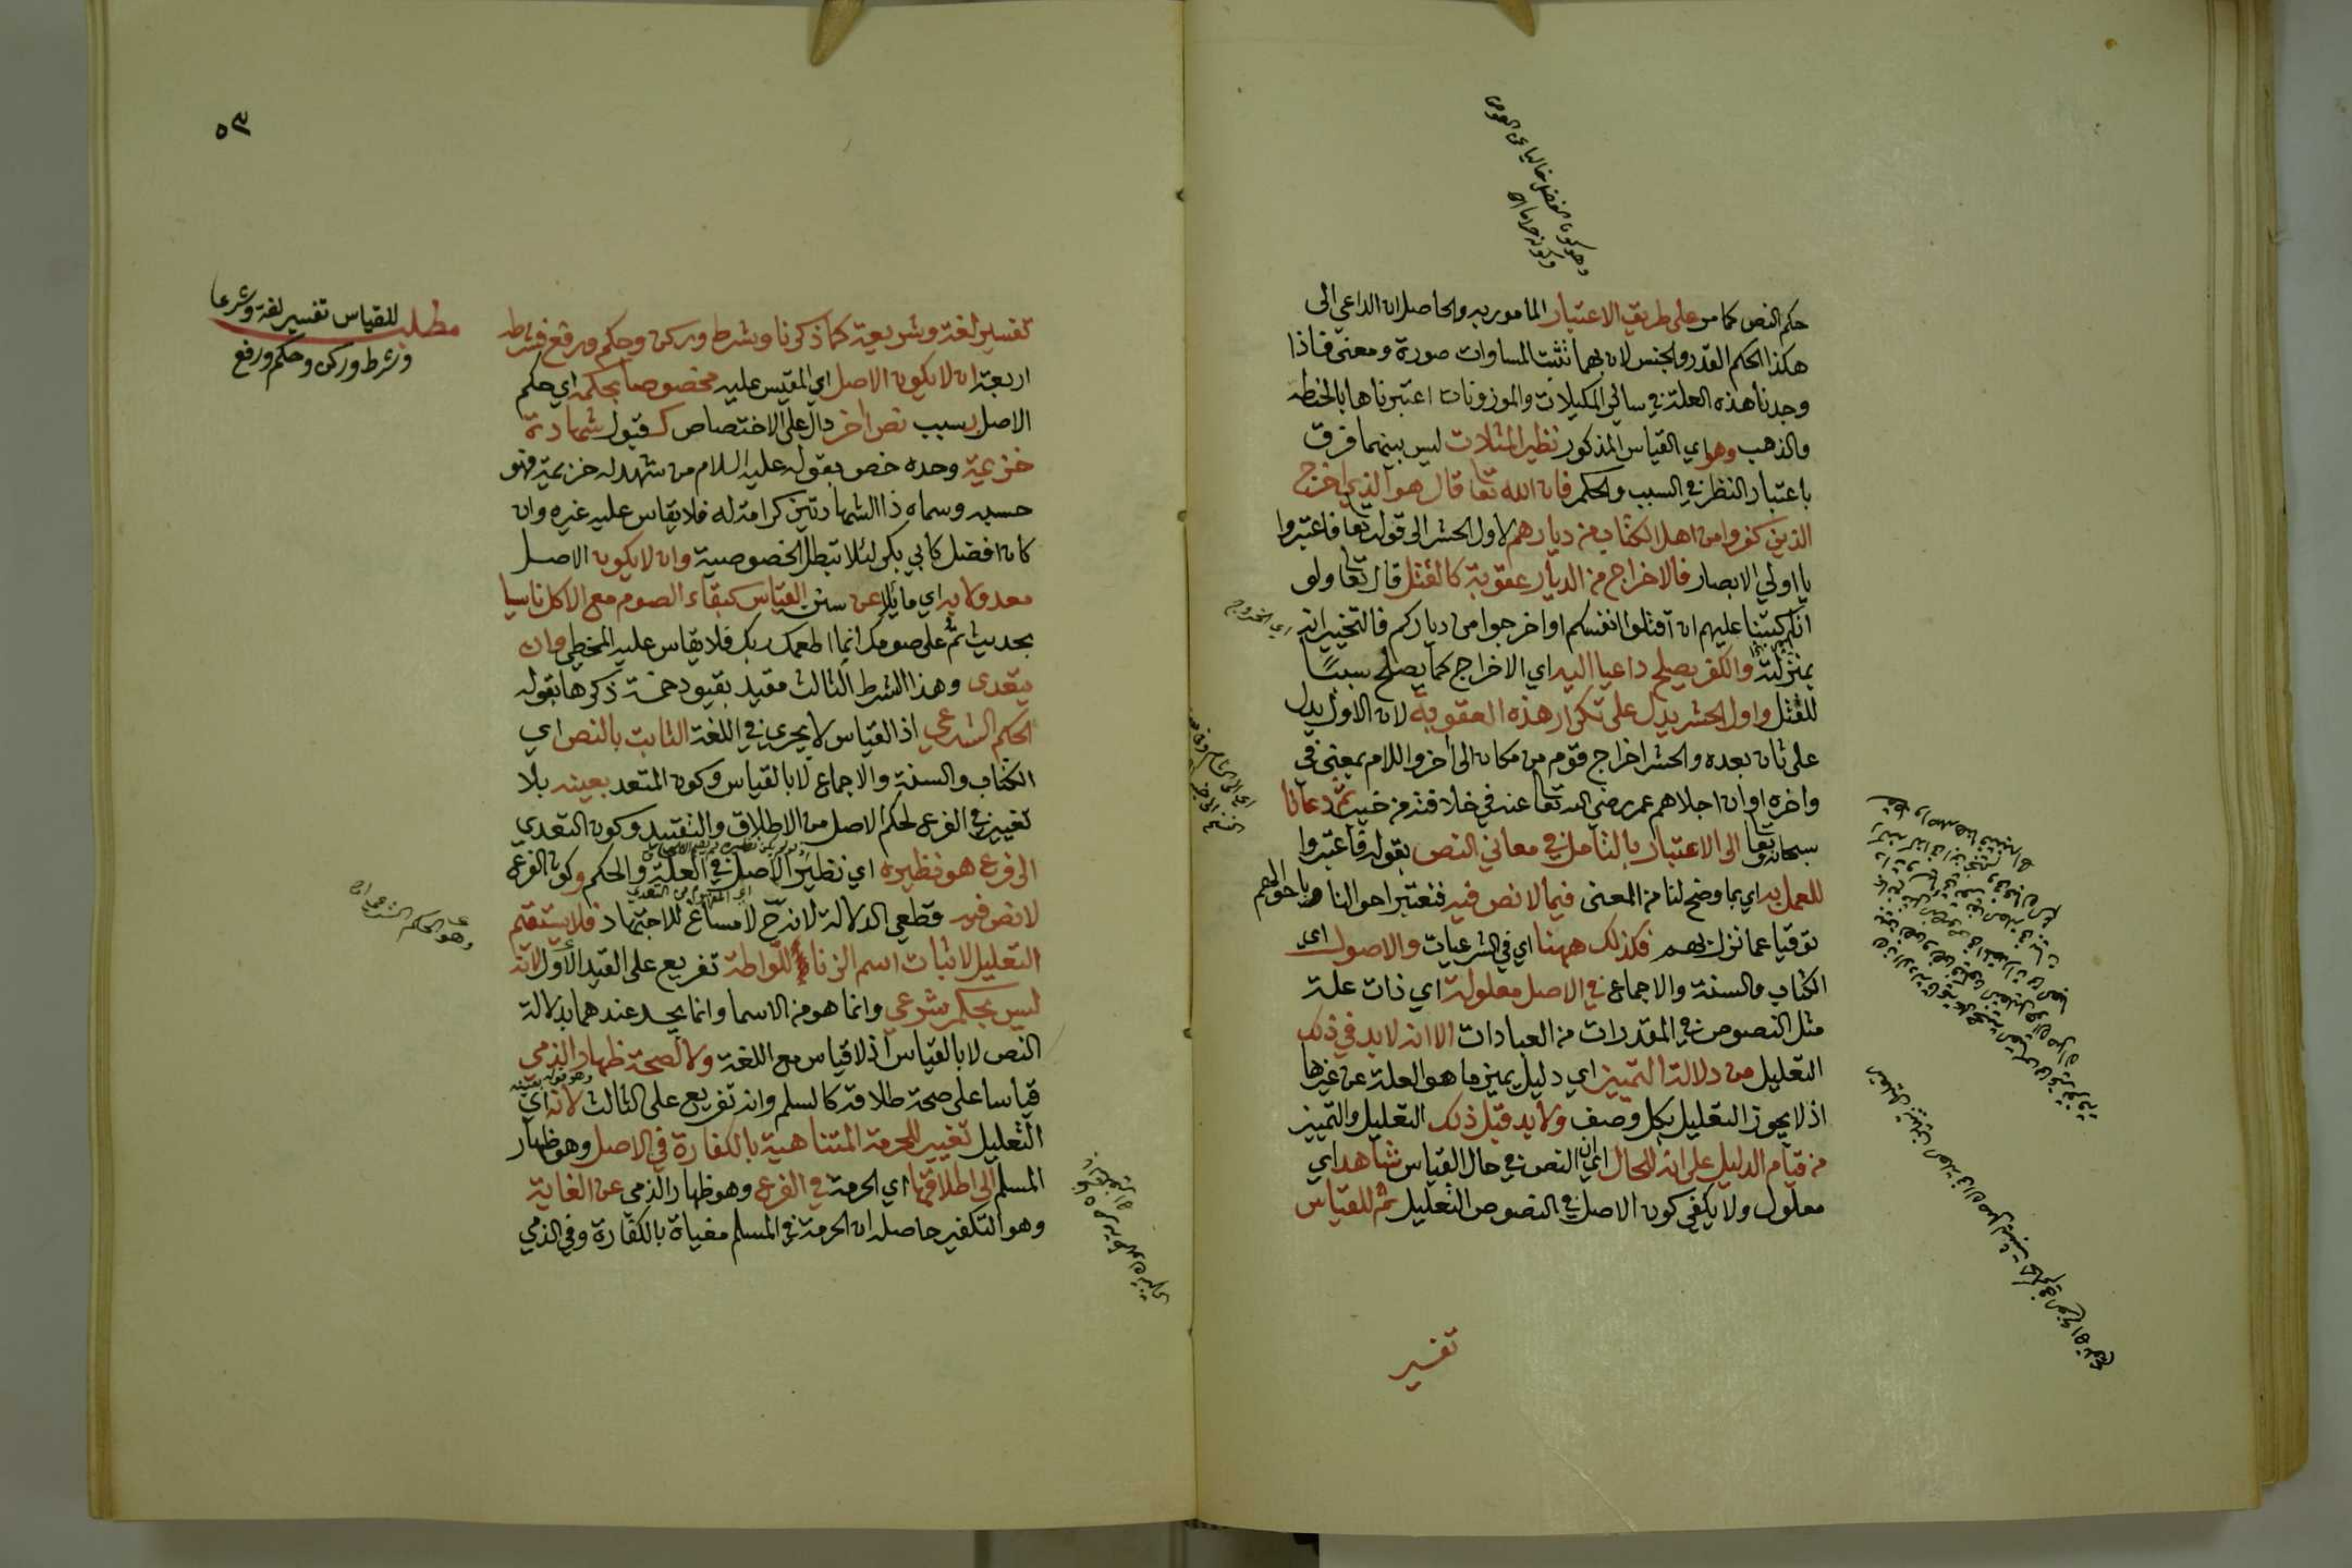 حكم النص كما مر على طريق الاعتبار المأمور به والحاصل ان الداعي الى
هكذا الحكم القدر والجنس لان بهما تثبت المساوات صورة ومعنى فاذا
وجدنا هذه العلة في سائر المكيلات والموزونات اعتبرناها بالحنطة
والذهب وهو اي القياس المذكور نظير المثلات ليس بينهما فرق
باعتبار النظر في السبب والحكم فان الله تعا قال هو الذي اخرج
الذين كفروا من اهل الكتاب من ديارهم لاول الحشر الى قوله تعا فاعتبروا
يا اولي الابصار فالاخراج من الديار عقوبة كالقتل قال تعا ولو
انا كتبنا عليهم ان اقتلوا انفسكم او اخرجوا من دياركم فالتخيير انه
اي الخروج
بمنزلته والكفر يصلح داعيا اليه اي الاخراج كما يصلح سببا
للقتل واول الحشر يدل على تكرار هذه العقوبة لان الاول يدل
على ثان بعده والحشر اخراج قوم من مكان الى آخر واللام بمعنى في
واخره اوان اجلاهم عمر رضي الله تعا عنه في خلافته من خيبر ثم دعانا
سبحانه وتعا الى الاعتبار بالتامل في معاني النص بقوله فاعتبروا
للعمل به اي بما وضح لنا من المعنى فيما لا نص فيه فنعتبر احوالنا باحوالهم
توقيا عما نزل بهم فكذلك ههنا اي في الشرعيات والاصول اي
الكتاب والسنة والاجماع في الاصل معلولة اي ذات علة
مثل النصوص في المقدرات من العبادات الا انه لا بد في ذلك
التعليل من دلالة التمييز اي دليل يميز ما هو العلة عن غيرها
اذ لا يجوز التعليل بكل وصف ولا بد قبل ذلك التعليل والتمييز
من قيام الدليل على انه للحال اي ان النص في حال القياس شاهد اي
معلول ولا يكفي كون الاصل في النصوص التعليل ثم للقياس
تفسير
٥٣
مطلب للقياس تفسير لغة وشرعا
وشرط وركن وحكم ورفع
تفسير لغة وشريعة كما ذكرنا وشرط وركن وحكم ورفع فشرطه
اربعة ان لا يكون الاصل اي المقيس عليه مخصوصا بحكمه اي حكم
الاصل بسبب نص اخر دال على الاختصاص كقبول شهادة
خزيمة وحده خص بقوله عليه السلام من شهد له خزيمة فهو
حسبه وسماه ذا الشهادتين كرامة له فلا يقاس عليه غيره وان
كان افضل كابي بكر لئلا تبطل الخصوصية وان لا يكون الاصل
معدولا به اي مائلا عن سنن القياس كبقاء الصوم مع الاكل ناسيا
بحديث تم على صومك انما اطعمك ربك فلا يقاس عليه المخطي وان
يتعدى وهذا الشرط الثالث مقيد بقيود خمسة ذكرها بقوله
الحكم الشرعي اذ القياس لا يجري في اللغة الثابت بالنص اي
الكتاب والسنة والاجماع لا بالقياس وكون المتعد بعينه بلا
تغيير في الفرع لحكم الاصل من الاطلاق والتقييد وكون التعدي
الى فرع هو نظيره اي نظير الاصل في العلة والحكم وكون الفرع
لا نص فيه قطعي الدلالة لانه ح لا مساغ للاجتهاد فلا يستقيم
التعليل لاثبات اسم الزنا للواطة تفريع على القيد الاول لانه
ليس بحكم شرعي وانما هو من الاسما وانما يحد عندهما بدلالة
النص لا بالقياس اذ لا قياس مع اللغة ولا لصحة ظهار الذمي
قياسا على صحة طلاقه كالمسلم وانه تفريع على الثالث لانه اي
التعليل تغيير للحرمة المتناهية بالكفارة في الاصل وهو ظهار
المسلم الى اطلاقها اي الحرمة في الفرع وهو ظهار الذمي عن الغاية
وهو التكفير حاصله ان الحرمة في المسلم مغياة بالكفارة وفي الذمي